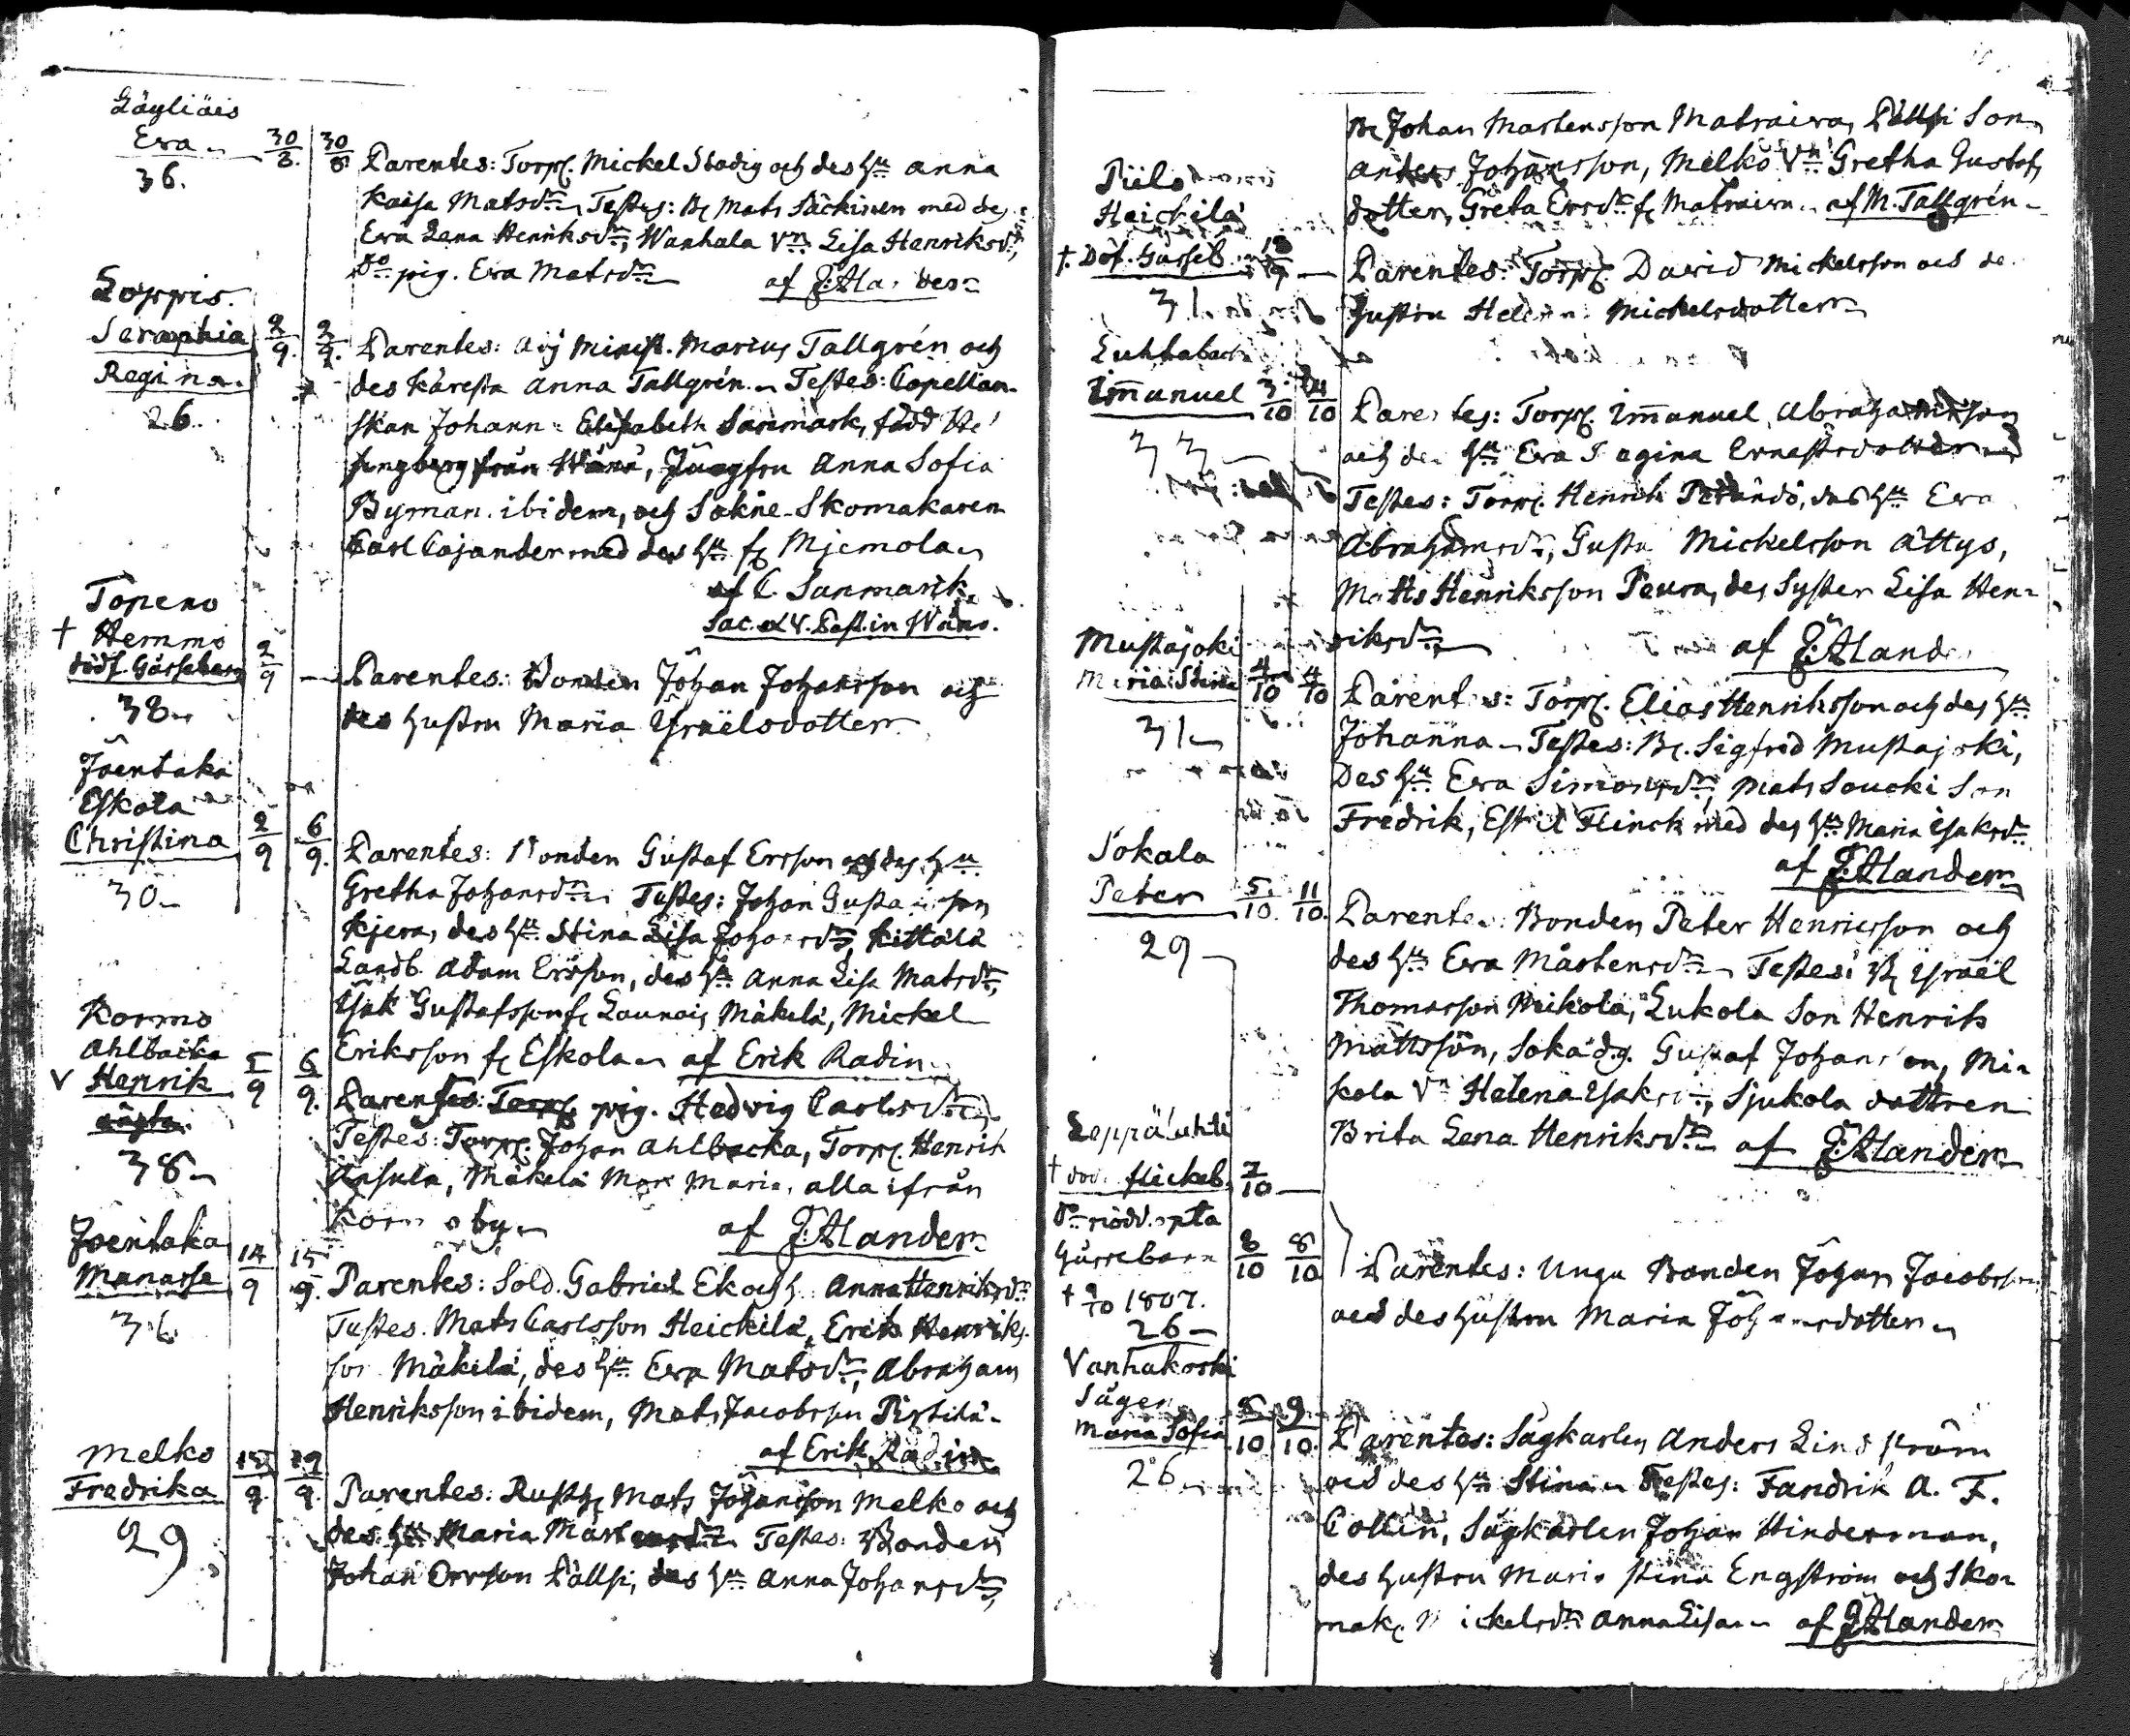 Löyliäis
Eva 30/8. 30/8. Parentes: Torp. Mickel Stadig och des Hu Anna
36. Kaisa Matsdr Testes: B. Mats Säckinen med des
Eva Lena Henriksdr, Wanhala Vn Lisa Henriksdr,
Do pig. Eva Matsdr af
Loppis.
Seraphia 2/9. 2/9. Parentes: Adj Minist. Marius Tallgrén och
Regina. des käresta Anna Tallgrén. Testes: Capellan-
26. skan Johann Elisabeth Sanmark, född
från Wånå, Jungfru Anna Sofia
Byman ibidem, och Sokne Skomakaren
Carl Cajander med des Hu fr Mjemola
af C. Sanmark.
Sac. & V. Past. in Wåno.
Topeno
† Hemmo
dödf. Gossebarn 2/9 — Parentes: Bonden Johan Johansson och
38 des hustru Maria Israelsdotter
Joentaka
Eskola
Christina 2/9 6/9. Parentes: Bonden Gustaf Ersson och des Hu
30 Gretha Johansdr Testes: Johan Gustafsson
Kjera, des Hu Stina Lisa Johansdr, Kittälä
Landb. Adam Ersson, des Hu Anna Lisa Matsdr,
Isak Gustafsson fr Launois Mäkelä, Mickel
Eriksson fr Eskola af Erik Radin
Kormo
Ahlbacka
V Henrik 5/9 6/9. Parentes: Torp. pig. Hedvig Carlsdr
oägta. Testes: Torp. Johan Ahlbacka, Torp. Henrik
38 Ansula, Mäkelä Maria, alla ifrån
Kormo by af F. Ålander
Joentaka
Manasse 14/9 15/9. Parentes: Sold. Gabriel Ek och h. Anna Henriksdr
36 Testes. Mats Carlsson Heickilä, Erik Henriks-
son Mäkelä, des Hu Eva Matsdr, Abraham
Henriksson ibidem, Mats Jacobsson Pistilä.
af Erik Radin
Melko
Fredrika 15/9. 19/9. Parentes: Rusth. Mats Johansson Melko och
29 des Hu Maria Mårtensdr Testes: Bonden
Johan Ersson Pällsi, des Hu Anna Johansdr,
B. Johan Martensson Matraiva, Pällsi Son
Anders Johansson, Melko Vn Gretha Gustafs
dotter, Greta Ersdr fr Matraiva. af M. Tallgrén
Piilo
Heickilä
†. Döf. Gosseb. Parentes: Torp. David Mickelsson och des
31 Hustru Helena Mickelsdotter
Luhtabacka
Imanuel 3/10 4/10 Parentes: Torp. Imanuel Abrahamsson
33 och des Hu Eva Regina Ernestsdotter
Testes: Torp. Henrik Perändö, des Hu Eva
Abrahamsdr, Gusta Mickelsson Ättys,
Matts Henriksson Peura, des Syster Lisa Hen-
riksdr af F. Ålander
Mustajoki
Maria Stina 4/10 4/10 Parentes: Torp. Elias Henriksson och des Hu
31 Johanna Testes: B. Sigfrid Mustajoki,
Des Hu Eva Simonsdr, Mats Soucki Son
Fredrik, Eskil Flinck med des Hu Maria Isaksdr
af F. Ålander
Sokala
Peter 5/10. 11/10. Parentes: Bonden Peter Henriksson och
29 des Hu Eva Mårtensdr Testes: B. Israel
Thomasson Mikola, Lukola Son Henrik
Mattsson, Soka dg. Gustaf Johansson, Mi-
kola Vn Helena Isaksdr, Sjukola dottren
Brita Lena Henriksdr af F. Ålander
Leppälahti
† död. flickeb. 7/10 —
Do nödd.öpta
Gossebarn 8/10 8/10 Parentes: Unga Bonden Johan Jacobsson
† 9/10 1807. och des hustru Maria Johansdotter
26
Vanhakoski
Sågen
Maria Sofia 8/10 9/10. Parentes: Sågkarlen Anders Lindström
26 och des Hu Stina Testes: Fändrik A. F.
Collin, Sågkarlen Johan Hinderman,
des hustru Maria Stina Engström och Sko-
mak. Mickelsdr Anna Lisa af F. Ålander